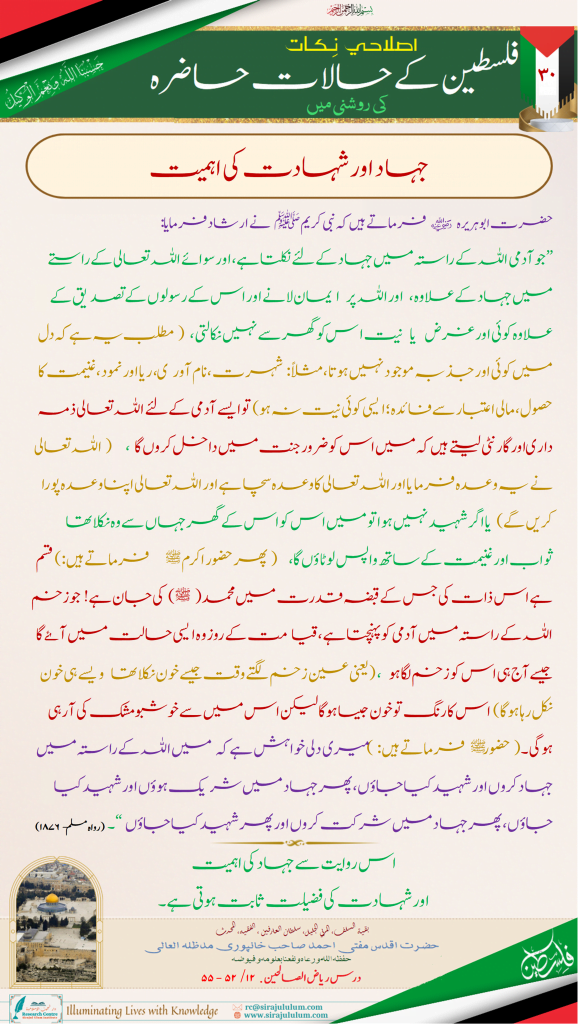 بسم اللہ الرحمن الرحیم
حَسْبُنَا اللّٰهُ وَنِعْمَ الْوَكِيْل
اصلاحي نِکات
فلسطین کے حالات حاضرہ
کی روشنی میں
۳۰
جہاد اور شہادت کی اہمیت
حضرت ابوہریرہ ؓ فرماتے ہیں کہ نبی کریم ﷺ نے ارشاد فرمایا:
”جو آدمی اللہ کے راستہ میں جہاد کے لئے نکلتا ہے، اور سوائے اللہ تعالی کے راستے
میں جہاد کے علاوہ، اور اللہ پر ایمان لانے اور اس کے رسولوں کے تصدیق کے
علاوہ کوئی اور غرض یا نیت اس کو گھر سے نہیں نکالتی، ( مطلب یہ ہے کہ دل
میں کوئی اور جذبہ موجود نہیں ہوتا، مثلاً: شہرت، نام آوری، ریا اور نمود، غنیمت کا
حصول، مالی اعتبار سے فائدہ؛ ایسی کوئی نیت نہ ہو) تو ایسے آدمی کے لئے اللہ تعالی ذمہ
داری اور گارنٹی لیتے ہیں کہ میں اس کو ضرور جنت میں داخل کروں گا ، ( اللہ تعالی
نے یہ وعدہ فرمایا اور اللہ تعالی کا وعدہ سچا ہے اور اللہ تعالی اپنا وعدہ پورا
کریں گے) یا اگر شہید نہیں ہوا تو میں اس کو اس کے گھر جہاں سے وہ نکلا تھا
ثواب اور غنیمت کے ساتھ واپس لوٹاؤں گا، ( پھر حضور اکرم ﷺ فرماتے ہیں:) قسم
ہے اس ذات کی جس کے قبضہ قدرت میں محمد( ﷺ) کی جان ہے! جو زخم
اللہ کے راستہ میں آدمی کو پہنچتا ہے، قیامت کے روز وہ ایسی حالت میں آئے گا
جیسے آج ہی اس کو زخم لگا ہو ،(یعنی عین زخم لگتے وقت جیسے خون نکلا تھا ویسے ہی خون
نکل رہا ہوگا) اس کا رنگ تو خون جیسا ہوگا لیکن اس میں سے خوشبو مشک کی آرہی
ہوگی۔( حضور ﷺ فرماتے ہیں: )میری دلی خواہش ہے کہ میں اللہ کے راستہ میں
جہاد کروں اور شہید کیا جاؤں، پھر جہاد میں شریک ہوؤں اور شہید کیا
جاؤں، پھر جہاد میں شرکت کروں اور پھر شہید کیا جاؤں “۔ (رواہ مسلم- ۱۸۷۶)
اس روایت سے جہاد کی اہمیت
اور شہادت کی فضیلت ثابت ہوتی ہے۔
حضرت اقدس مفتی احمد صاحب خانپوری مدظلہ العالی
حفظہ اللہ ورعاہ ونفعنا بعلومہ وفیوضہ
درس ریاض الصالحین. ۱۲/ ۵۲ - ۵۵
فلسطین
Research Centre
Illuminating Lives with Knowledge
rc@sirajululum.com
www.sirajululum.com